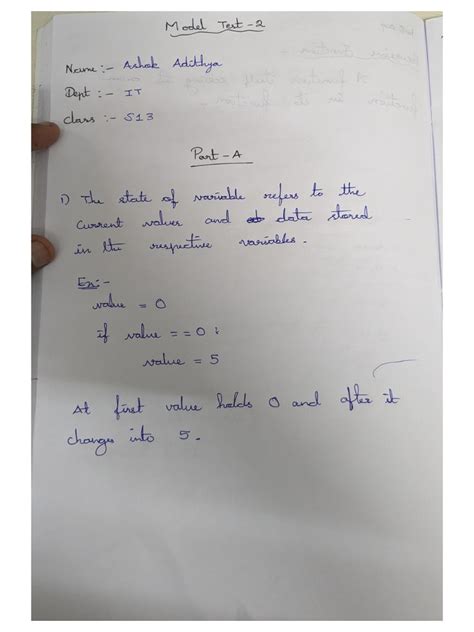 Model Test - 2
Name :- Ashok Adithya
Dept :- IT
class :- S13
Part - A
1) The state of variable refers to the
current values and data stored
in the respective variables.
Ex:-
value = 0
if value == 0 :
value = 5
At first value holds 0 and after it
changes into 5.